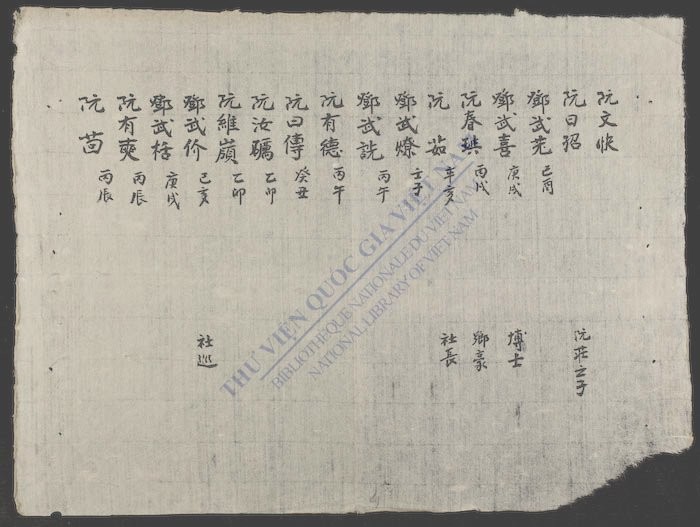 阮文快
阮曰招 阮莊之子
鄧武羌 己酉
鄧武喜 庚戌 博士
阮春琪 丙戌 鄉豪
阮茹 辛亥 社長
鄧武燎 壬子
鄧武詵 丙午
阮有德 丙午
阮曰傳 癸丑
阮汝驪 乙卯
阮維嶺 乙卯
鄧武价 己亥 社巡
鄧武栝 庚戌
阮有爽 丙辰
阮茴 丙辰
THƯ VIỆN QUỐC GIA VIỆT NAM
BIBLIOTHEQUE NATIONALE DU VIETNAM
NATIONAL LIBRARY OF VIETNAM